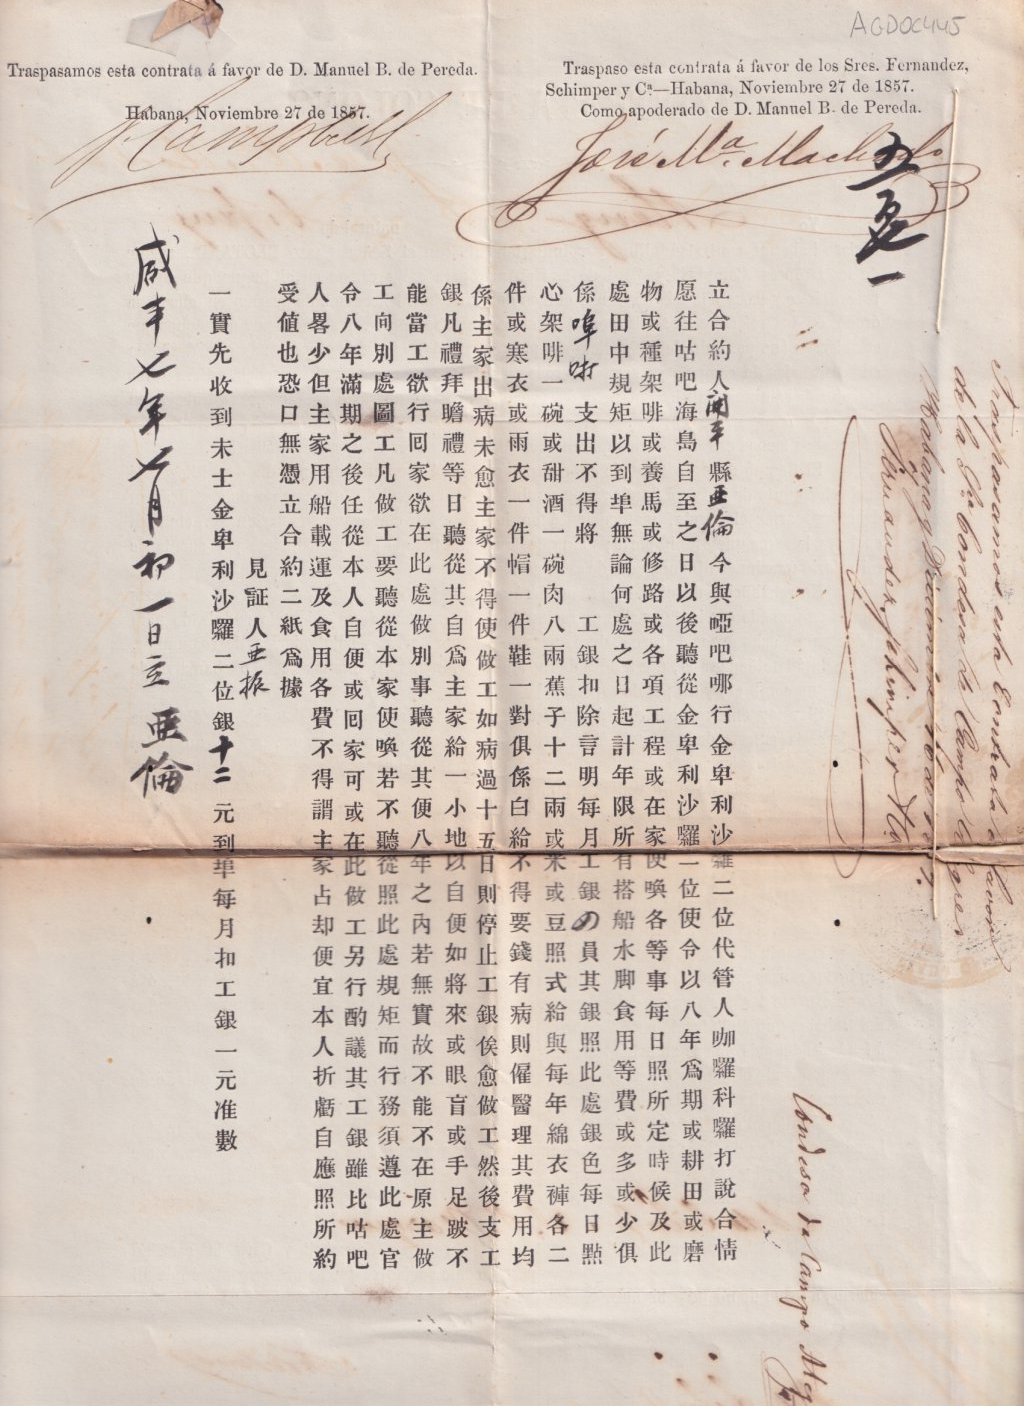 AGDOC445
Traspasamos esta contrata á favor de D. Manuel B. de Pereda.
Habana, Noviembre 27 de 1857.
Campbell
Traspaso esta contrata á favor de los Sres. Fernandez,
Schimper y Cª—Habana, Noviembre 27 de 1857.
Como apoderado de D. Manuel B. de Pereda.
José Mª Machado
Traspasamos esta Contrata a favor
de la Sra Condesa de Campo Alegre
Habana y Diciembre 16 de 1857.
Fernandez Schimper
Condesa de Campo Aleg
立合約人開平縣亞倫今與啞吧哪行金卑利沙囉二位代管人咖囉科囉打說合情
愿往咕吧海島自至之日以後聽從金卑利沙囉二位使令以八年為期或耕田或磨
物或種架啡或養馬或修路或各項工程或在家使喚各等事每日照所定時候及此
處田中規矩以到埠無論何處之日起計年限所有搭船水脚食用等費或多或少俱
係埠 支出不得將 工銀扣除言明每月工銀 員其銀照此處銀色每日點
心架啡一碗或甜酒一碗肉八兩蕉子十二兩或米或豆照式給與每年綿衣褲各二
件或寒衣或雨衣一件帽一件鞋一對俱係白給不得要錢有病則僱醫理其費用均
係主家出病未愈主家不得使做工如病過十五日則停止工銀俟愈做工然後支工
銀凡禮拜瞻禮等日聽從其自為主家給一小地以自便如將來或眼盲或手足跛不
能當工欲行回家欲在此處做別事聽從其便八年之內若無實故不能不在原主做
工向別處圖工凡做工要聽從本家使喚若不聽從照此處規矩而行務須遵此處官
令八年滿期之後任從本人自便或回家可或在此做工另行酌議其工銀雖比咕吧
人畧少但主家用船載運及食用各費不得謂主家占却便宜本人折虧自應照所約
受值也恐口無憑立合約二紙為據
見証人亞振
一實先收到未士金卑利沙囉二位銀十二元到埠每月扣工銀一元准數
咸丰七年七月初一日立 亞倫